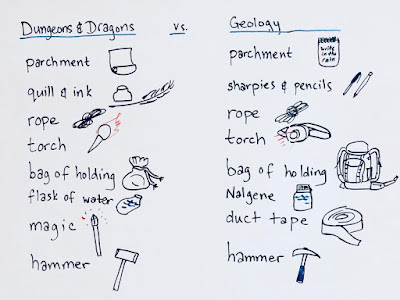 Dungeons & Dragons vs. Geology
parchment
quill & ink
rope
torch
bag of holding
flask of water
magic
hammer
parchment
write in the rain
sharpies & pencils
rope
torch
bag of holding
Nalgene
duct tape
hammer